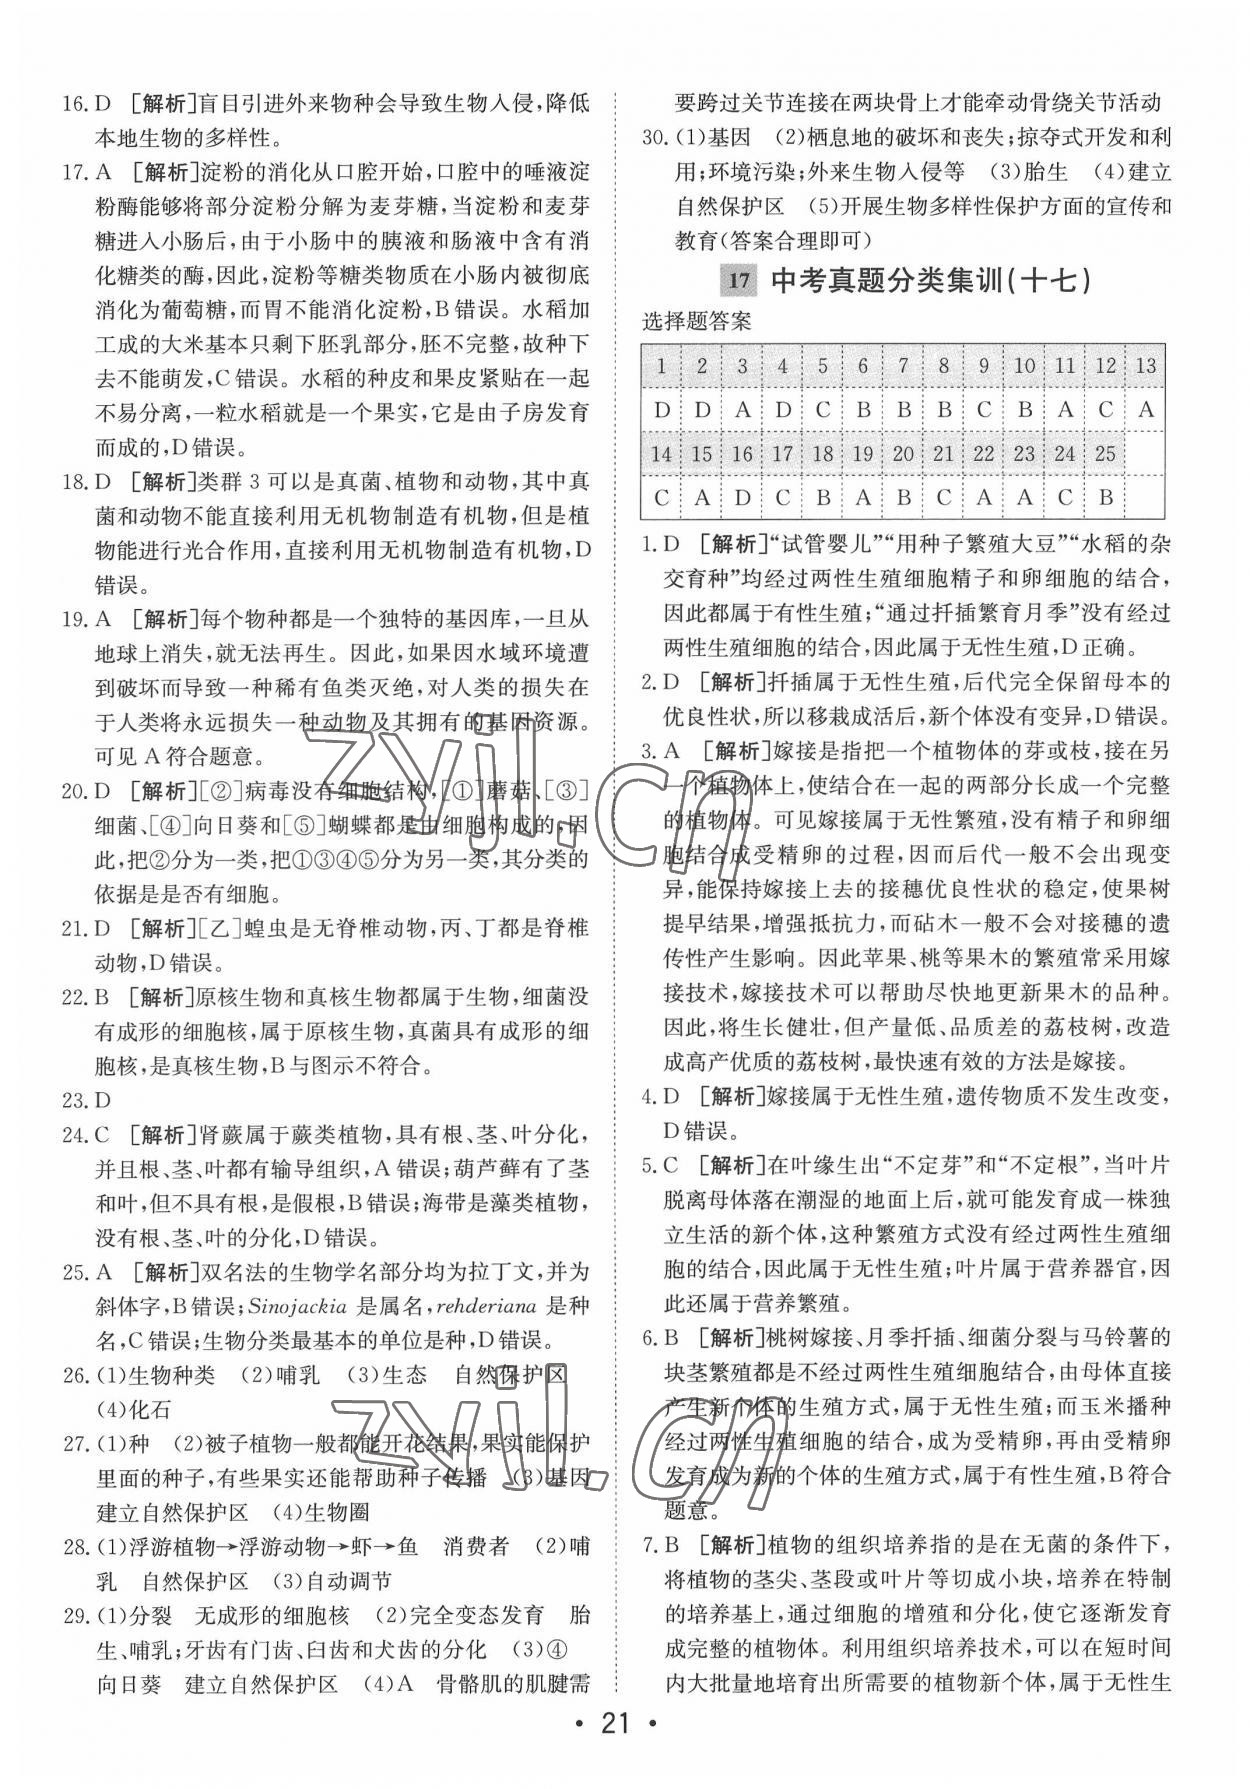 16. D [解析]盲目引进外来物种会导致生物入侵,降低
本地生物的多样性。
17. A [解析]淀粉的消化从口腔开始,口腔中的唾液淀
粉酶能够将部分淀粉分解为麦芽糖,当淀粉和麦芽
糖进入小肠后,由于小肠中的胰液和肠液中含有消
化糖类的酶,因此,淀粉等糖类在小肠内被彻底
消化为葡萄糖,而胃不能消化淀粉,B错误。水稻加
工成的大米基本只剩下胚乳部分,胚不完整,故种下
去不能萌发,C错误。水稻的种皮和果皮紧贴在一起
不易分离,一粒水稻就是一个果实,它是由子房发育
而成的,D错误。
18. D [解析]类群3可以是真菌、植物和动物,其中真
菌和动物不能直接利用无机物制造有机物,但是植
物能进行光合作用,直接利用无机物制造有机物,D
错误。
19. A [解析]每个物种都是一个独特的基因库,一旦从
地球上消失,就无法再生。因此,如果因水域环境遭
到破坏而导致一种稀有鱼类灭绝,对人类的损失在
于人类将永远损失一种动物及其拥有的基因资源。
可见A符合题意。
20. D [解析][②]病毒没有细胞结构,[①]蘑菇、[③]
细菌、[④]向日葵和[⑤]蝴蝶都是由细胞构成的,因
此,把②分为一类,把①③④⑤分为另一类,其分类的
依据是是否有细胞。
21. D [解析][乙]蝗虫是无脊椎动物,丙、丁都是脊椎
动物,D错误。
22. B [解析]原核生物和真核生物都属于生物,细菌没
有成形的细胞核,属于原核生物,真菌具有成形的细
胞核,是真核生物,B与图示不符合。
23. D
24. C [解析]肾蕨属于蕨类植物,具有根、茎、叶分化,
并且根、茎、叶都有输导组织,A错误;葫芦藓有了茎
和叶,但不具有根,是假根,B错误;海带是藻类植物,
没有根、茎、叶的分化,D错误。
25. A [解析]双名法的生物学名部分均为拉丁文,并为
斜体字,B错误;Sinojackia是属名,rehderiana是种
名,C错误;生物分类最基本的单位是种,D错误。
26. (1)生物种类 (2)哺乳 (3)生态 自然保护区
(4)化石
27. (1)种 (2)被子植物一般都能开花结果,果实能保护
里面的种子,有些果实还能帮助种子传播 (3)基因
建立自然保护区 (4)生物圈
28. (1)浮游植物→浮游动物→虾→鱼 消费者 (2)哺
乳 自然保护区 (3)自动调节
29. (1)分裂 无成形的细胞核 (2)完全变态发育 胎
生、哺乳;牙齿有门齿、臼齿和犬齿的分化 (3)④
向日葵 建立自然保护区 (4)A 骨骼肌的肌腱需
要跨过关节连接在两块骨上才能牵动骨绕关节活动
30. (1)基因 (2)栖息地的破坏和丧失;掠夺式开发和利
用;环境污染;外来生物入侵等 (3)胎生 (4)建立
自然保护区 (5)开展生物多样性保护方面的宣传和
教育(答案合理即可)
17 中考真题分类集训(十七)
选择题答案
1 2 3 4 5 6 7 8 9 10 11 12 13
D D A D C B B B C B A C A
14 15 16 17 18 19 20 21 22 23 24 25
C A D C B A B C A A C B
1. D [解析]“试管婴儿”“用种子繁殖大豆”“水稻的杂
交育种”均经过两性生殖细胞精子和卵细胞的结合,
因此都属于有性生殖;“通过扦插繁育月季”没有经过
两性生殖细胞的结合,因此属于无性生殖,D正确。
2. D [解析]扦插属于无性生殖,后代完全保留母本的
优良性状,所以移栽成活后,新个体没有变异,D错误。
3. A [解析]嫁接是指把一个植物体的芽或枝,接在另
一个植物体上,使结合在一起的两部分长成一个完整
的植物体。可见嫁接属于无性繁殖,没有精子和卵细
胞结合成受精卵的过程,因而后代一般不会出现变
异,能保持嫁接上去的接穗优良性状的稳定,使果树
提早结果,增强抵抗力,而砧木一般不会对接穗的遗
传性产生影响。因此苹果、桃等果木的繁殖常采用嫁
接技术,嫁接技术可以帮助尽快地更新果木的品种。
因此,将生长健壮,但产量低、品质差的荔枝树,改造
成高产优质的荔枝树,最快速有效的方法是嫁接。
4. D [解析]嫁接属于无性生殖,遗传物质不发生改变,
D错误。
5. C [解析]在叶缘生出“不定芽”和“不定根”,当叶片
脱离母体落在潮湿的地面上后,就可能发育成一株独
立生活的新个体,这种繁殖方式没有经过两性生殖细
胞的结合,因此属于无性生殖;叶片属于营养器官,因
此还属于营养繁殖。
6. B [解析]桃树嫁接、月季扦插、细菌分裂与马铃薯的
块茎繁殖都是不经过两性生殖细胞结合,由母体直接
产生新个体的生殖方式,属于无性生殖;而玉米播种
经过两性生殖细胞的结合,成为受精卵,再由受精卵
发育成为新的个体的生殖方式,属于有性生殖,B符合
题意。
7. B [解析]植物的组织培养指的是在无菌的条件下,
将植物的茎尖、茎段或叶片等切成小块,培养在特制
的培养基上,通过细胞的增殖和分化,使它逐渐发育
成完整的植物体。利用组织培养技术,可以在短时间
内大批量地培育出所需要的植物新个体,属于无性生
• 21 •
zyjl.cn
zyjl.cn